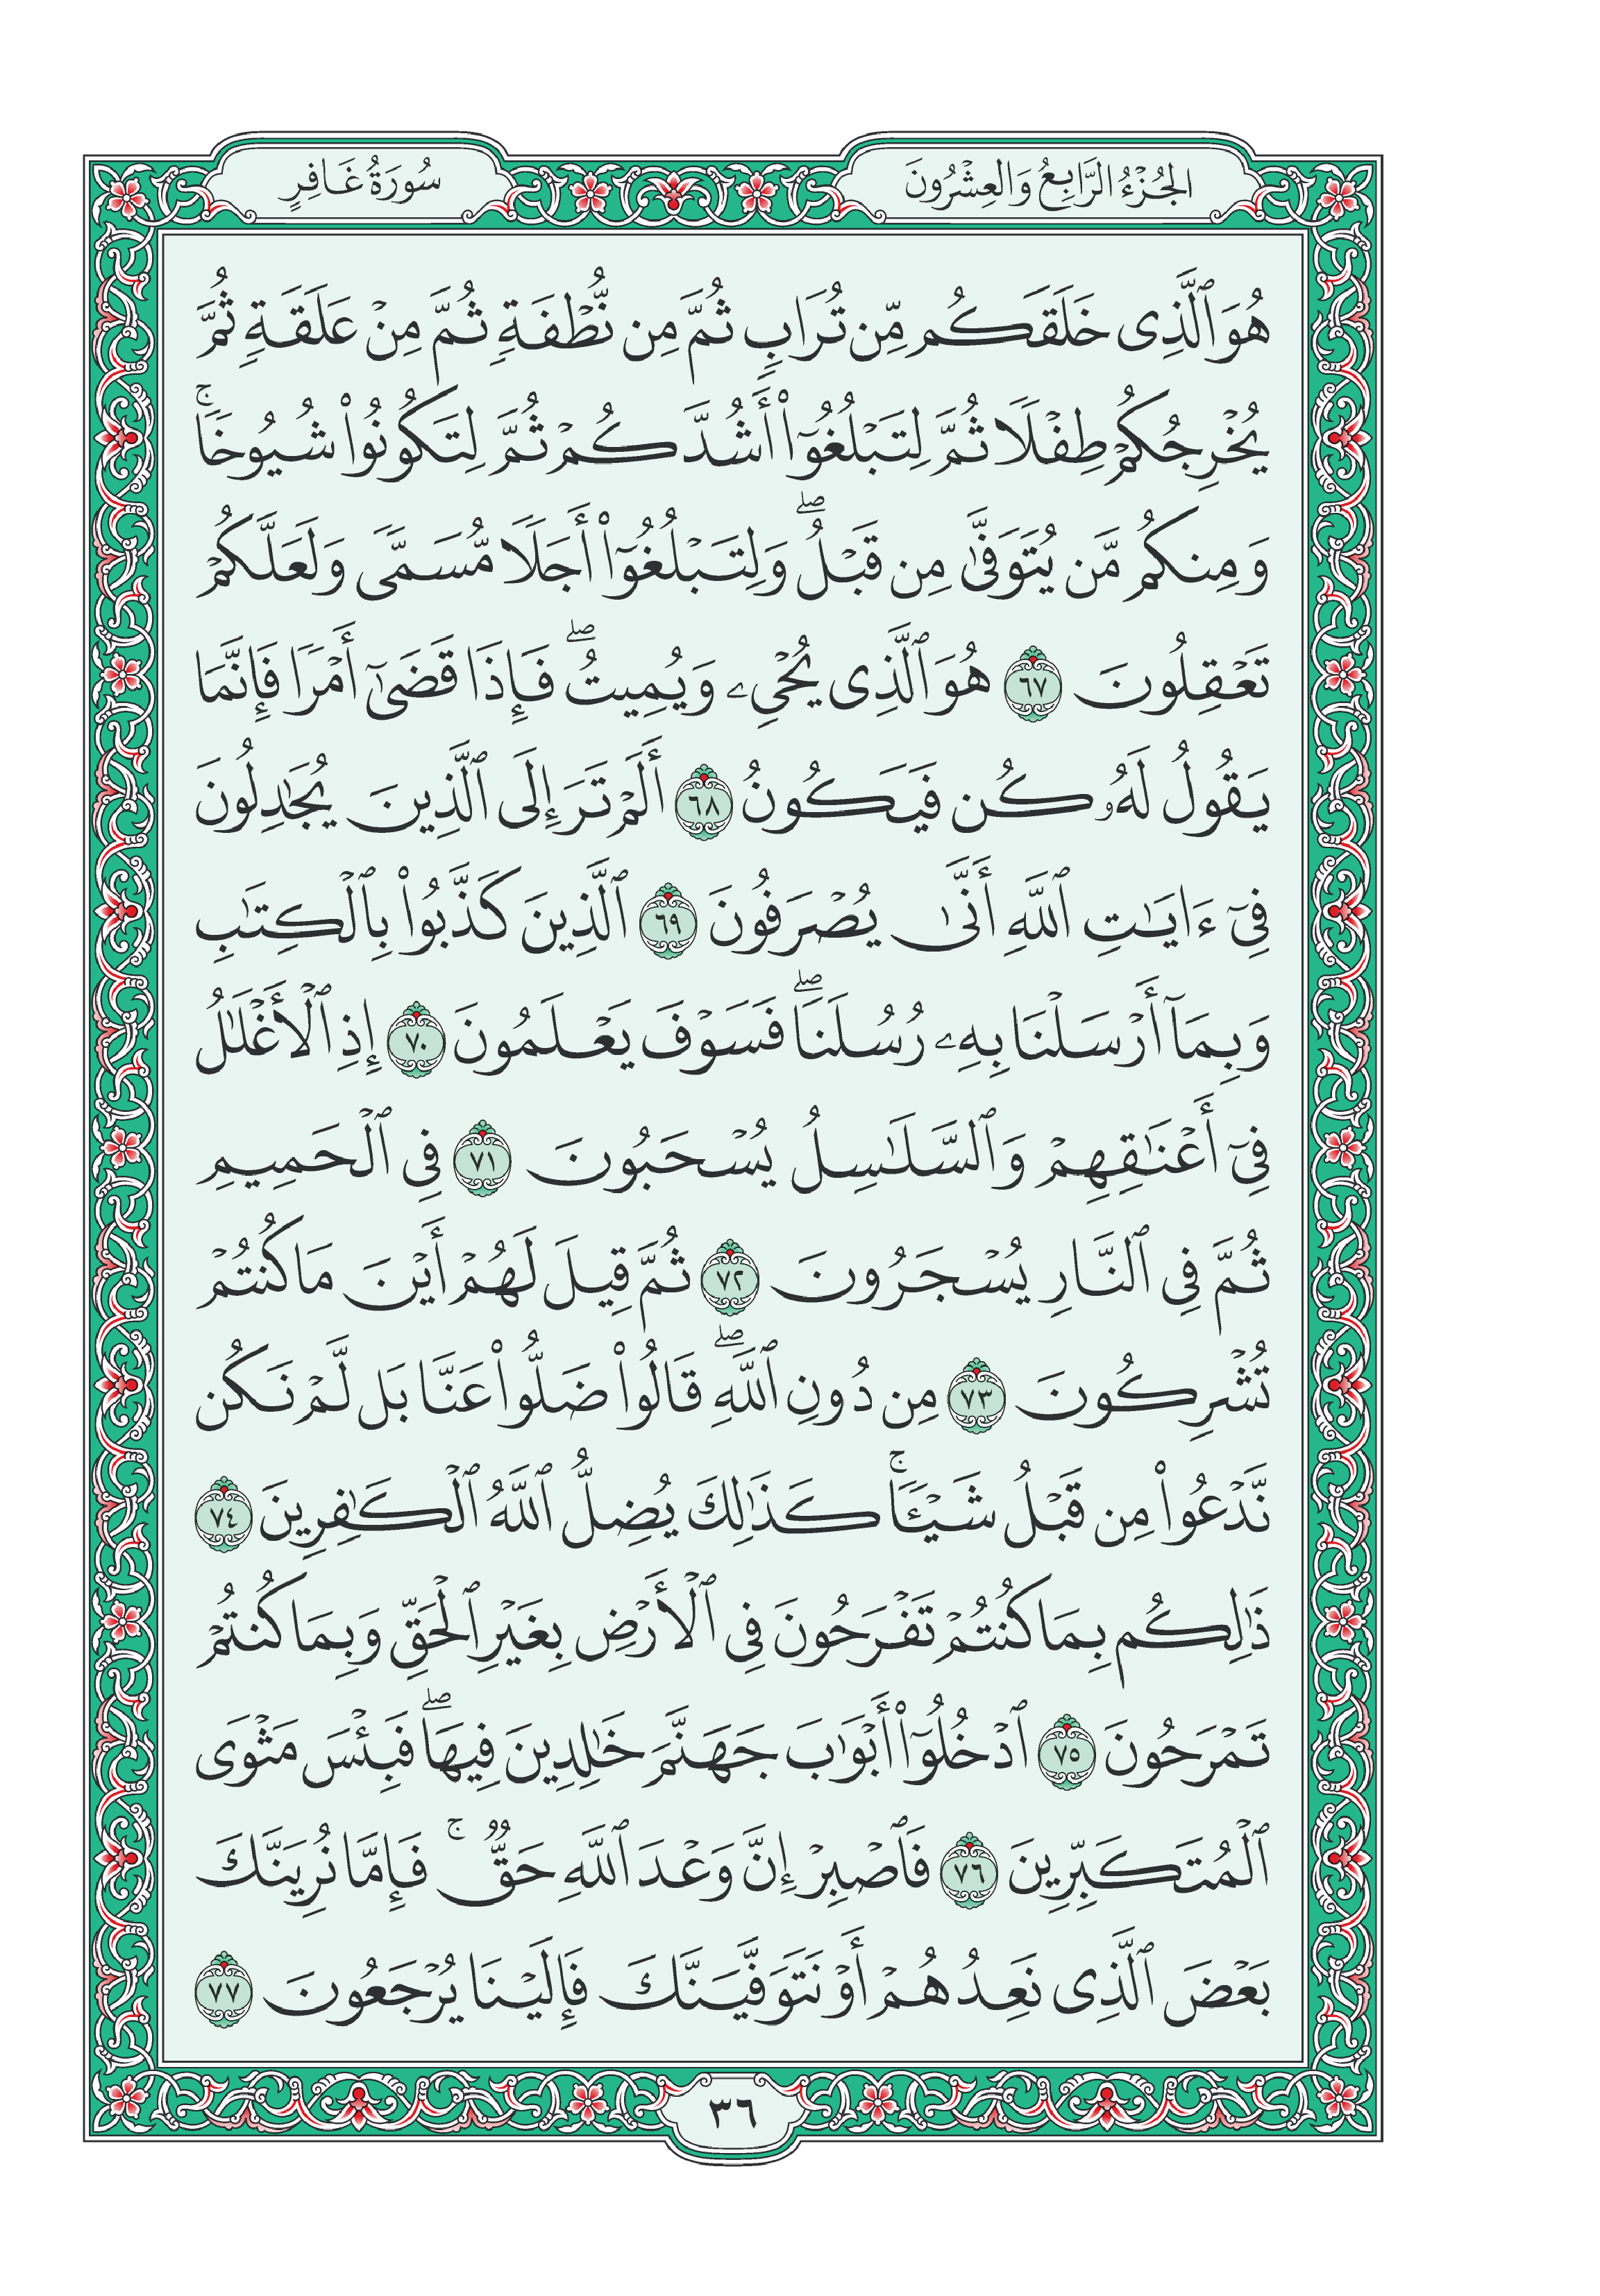 الجُزْءُ الرَّابِعُ وَالعِشْرُونَ
سُورَةُ غَافِرٍ
هُوَ ٱلَّذِى خَلَقَكُم مِّن تُرَابٍ ثُمَّ مِن نُّطْفَةٍ ثُمَّ مِنْ عَلَقَةٍ ثُمَّ
يُخْرِجُكُمْ طِفْلًا ثُمَّ لِتَبْلُغُوٓا۟ أَشُدَّكُمْ ثُمَّ لِتَكُونُوا۟ شُيُوخًا ۚ
وَمِنكُم مَّن يُتَوَفَّىٰ مِن قَبْلُ ۖ وَلِتَبْلُغُوٓا۟ أَجَلًا مُّسَمًّى وَلَعَلَّكُمْ
تَعْقِلُونَ ٦٧ هُوَ ٱلَّذِى يُحْىِۦ وَيُمِيتُ ۖ فَإِذَا قَضَىٰٓ أَمْرًا فَإِنَّمَا
يَقُولُ لَهُۥ كُن فَيَكُونُ ٦٨ أَلَمْ تَرَ إِلَى ٱلَّذِينَ يُجَـٰدِلُونَ
فِىٓ ءَايَـٰتِ ٱللَّهِ أَنَّىٰ يُصْرَفُونَ ٦٩ ٱلَّذِينَ كَذَّبُوا۟ بِٱلْكِتَـٰبِ
وَبِمَآ أَرْسَلْنَا بِهِۦ رُسُلَنَا ۖ فَسَوْفَ يَعْلَمُونَ ٧٠ إِذِ ٱلْأَغْلَـٰلُ
فِىٓ أَعْنَـٰقِهِمْ وَٱلسَّلَـٰسِلُ يُسْحَبُونَ ٧١ فِى ٱلْحَمِيمِ
ثُمَّ فِى ٱلنَّارِ يُسْجَرُونَ ٧٢ ثُمَّ قِيلَ لَهُمْ أَيْنَ مَا كُنتُمْ
تُشْرِكُونَ ٧٣ مِن دُونِ ٱللَّهِ ۖ قَالُوا۟ ضَلُّوا۟ عَنَّا بَل لَّمْ نَكُن
نَّدْعُوا۟ مِن قَبْلُ شَيْـًٔا ۚ كَذَٰلِكَ يُضِلُّ ٱللَّهُ ٱلْكَـٰفِرِينَ ٧٤
ذَٰلِكُم بِمَا كُنتُمْ تَفْرَحُونَ فِى ٱلْأَرْضِ بِغَيْرِ ٱلْحَقِّ وَبِمَا كُنتُمْ
تَمْرَحُونَ ٧٥ ٱدْخُلُوٓا۟ أَبْوَٰبَ جَهَنَّمَ خَـٰلِدِينَ فِيهَا ۖ فَبِئْسَ مَثْوَى
ٱلْمُتَكَبِّرِينَ ٧٦ فَٱصْبِرْ إِنَّ وَعْدَ ٱللَّهِ حَقٌّ ۚ فَإِمَّا نُرِيَنَّكَ
بَعْضَ ٱلَّذِى نَعِدُهُمْ أَوْ نَتَوَفَّيَنَّكَ فَإِلَيْنَا يُرْجَعُونَ ٧٧
٣٦